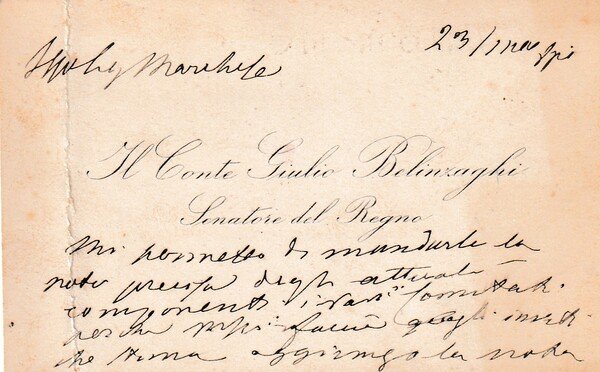 23/
Marchese
Il Conte Giulio Belinzaghi
Senatore del Regno
Mi permetto di mandarle la
nota precisa degli attuali
componenti i vari Comitati
perché faccia quegli
che stima aggiungo la nota